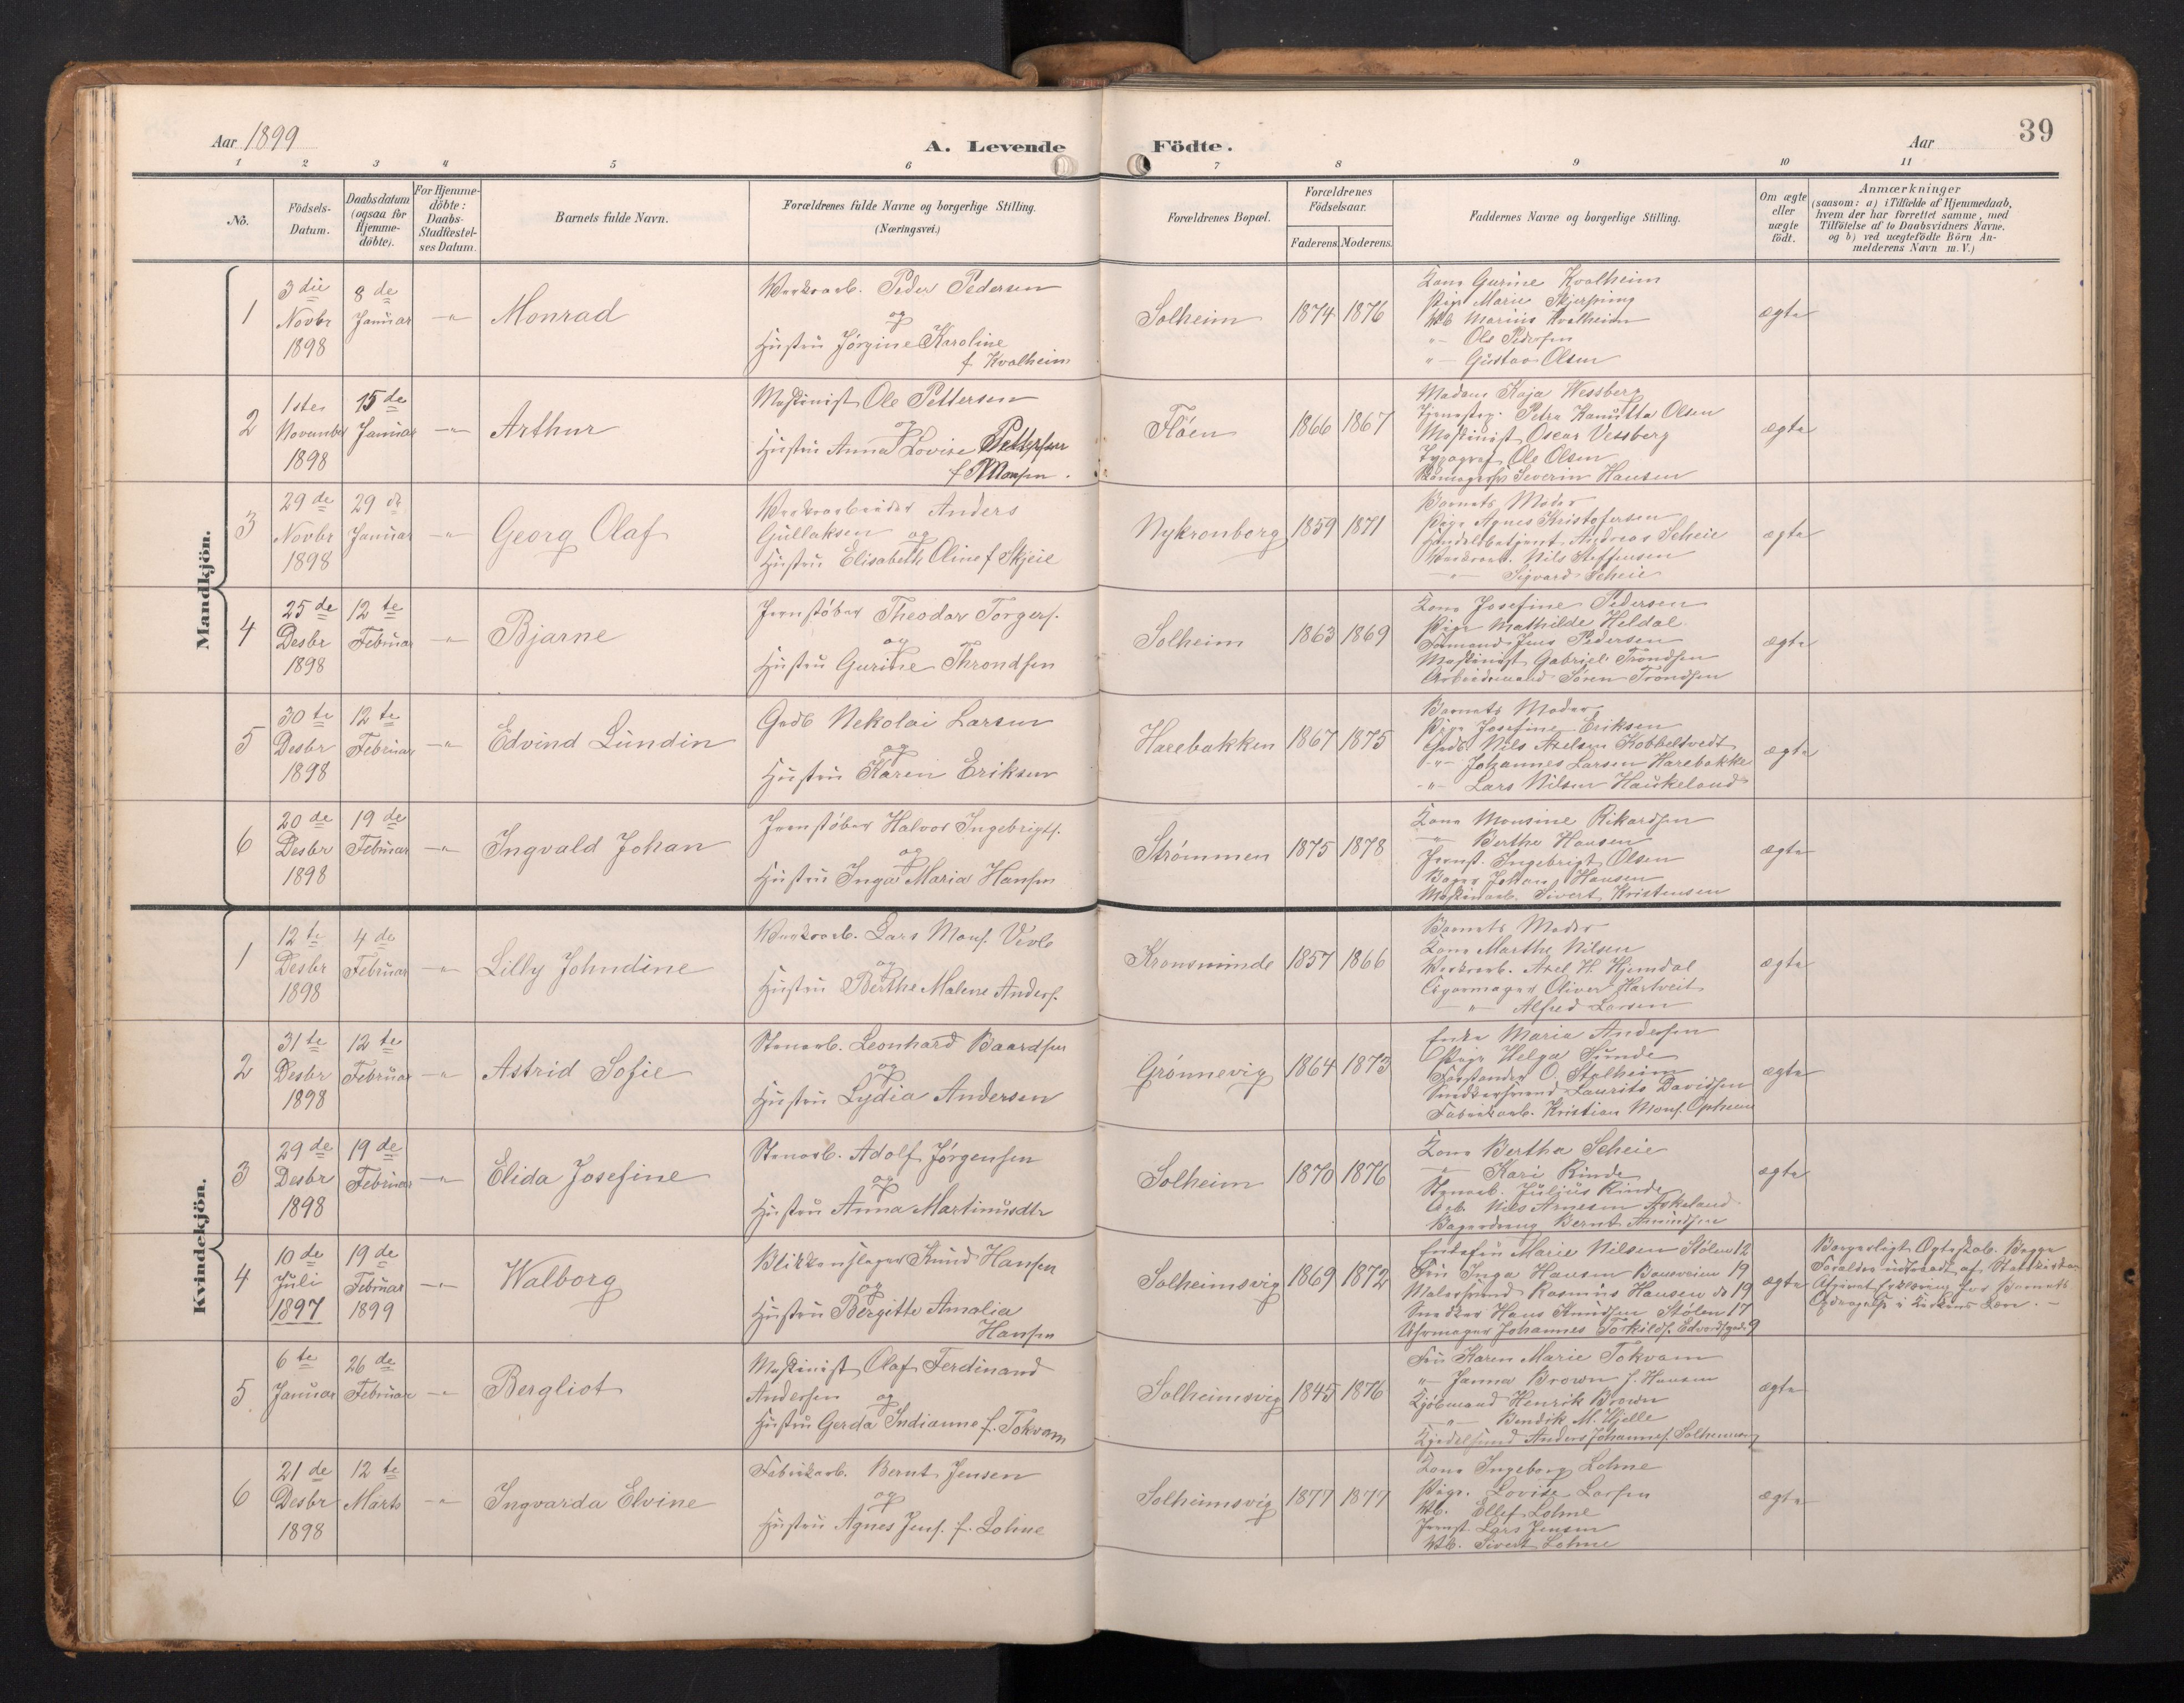 Aar 1899
A. Levende
Födte.
Aar
39
1 2 3 4 5 6 7 8 9 10 11
Nô.
Födsels-Datum.
Daabsdatum (ogsaa for Hjemme-döbte).
For Hjemme-döbte: Daabs-Stadfæstel-ses Datum.
Barnets fulde Navn.
Forældrenes fulde Navne og borgerlige Stilling.
(Næringsvei.)
Forældrenes Bopæl.
Forældrenes Födselsaar.
Faderens. Moderens.
Faddernes Navne og borgerlige Stilling.
Om ægte eller uægte födt.
Anmærkninger
(saasom: a) i Tilfælde af Hjemmedaab,
hvem der har forrettet samme, med
Tilföielse af to Daabsvidners Navne,
og b) ved uægtefödte Börn An-
melderens Navn m. V.)
Mandkjön.
1
3 die Novbr 1898
8 de Januar
Monrad
Værksarb. Peder Pedersen
og
Hustru Jørgine Karoline
f. Kvalheim
Solheim
1874 1876
Kone Gurine Kvalheim
Pige Marie Skjerping
Vb Marius Kvalheim
" Ole Pedersen
" Gustav Olsen
ægte
2
1ste November 1898
15 de Januar
Arthur
Maskinist Ole Pettersen
og
Hustru Anna Lovise Pettersen
f. Monsen.
Fløen
1866 1867
Madam Kaja Wessberg
Petra Kanutta Olsen
Maskinist Oscar Vessberg
Typograf Ole Olsen
Severin Hansen
ægte
3
29 de Novbr 1898
29 de Januar
Georg Olaf
Værksarbeider Anders
Gullaksen og
Hustru Elisabeth Oline f. Skjeie
Nykronborg
1859 1871
Barnets Moder
Pige Agnes Kristofersen
Handelsbetjent Andreas Scheie
Værksarb. Nils Steffensen
" Sigvard Scheie
ægte
4
25 de Desbr 1898
12 te Februar
Bjarne
Jernstøber Theodor Torgers.
og
Hustru Gurine Throndsen
Solheim
1863 1869
Kone Josefine Pedersen
Pige Mathilde Heldal
Formand Jens Pedersen
Maskinist Gabriel Trondsen
Arbeidsmand Søren Trondsen
ægte
5
30 te Desbr 1898
12 te Februar
Edvind Lundin
Gadb Nekolai Larsen
og
Hustru Karen Eriksen
Harebakken
1867 1875
Barnets Moder
Pige Josefine Eriksen
Gadb Nils Axelsen Kobbeltvedt
" Johannes Larsen Harebakke
" Lars Nilsen Haukeland
ægte
6
20 de Desbr 1898
19 de Februar
Ingvald Johan
Jernstøber Halvor Ingebrigts.
og
Hustru Inga Maria Hansen
Strømmen
1875 1878
Kone Monsine Rikardsen
" Berthe Hansen
Jernst. Ingebrigt Olsen
Bager Johan Hansen
Maskinarb. Sivert Kristensen
ægte
Kvindekjön.
1
12 te Desbr 1898
4 de Februar
Lilly Johndine
Værksarb. Lars Mons.
og
Hustru Berthe Malene Anders.
Kronsminde
1857 1866
Barnets Moder
Kone Marthe Nilsen
Værksarb. Axel H. Hjemdal
Cigarmager Oliver Hartveit
" Alfred Larsen
ægte
2
31 te Desbr 1898
12 te Februar
Astrid Sofie
Stenarb. Leonhard Baardsen
og
Hustru Lydia Andersen
Grønnevig
1864 1873
Enke Maria Andersen
Pige Helga Sunde
Forstander O. Stalheim
Snedkersvend Laurits Davidsen
Fabrikarb. Kristian Mons. Opheim
ægte
3
29 de Desbr 1898
19 de Februar
Elida Josefine
Stenarb. Adolf Jørgensen
og
Hustru Anna Martinusdtr
Solheim
1870 1876
Kone Bertha Scheie
" Kari Rinde
Stenarb. Julius Rinde
Nils Arnesen Askeland
Bagerdreng Bernt Amundsen
ægte
4
10 de Juli 1897
19 de Februar 1899
Walborg
Blikkenslager Knud Hansen
og
Hustru Bergitte Amalia
Hansen
Solheimsvig
1869 1872
Marie Nilsen Stølen 12
Fru Inga Hansen 19
Malersvend Rasmus Hansen do 19
Snedker Hans Knudsen Stølen 17
Uhrmager Johannes Torkilds. Edvardsgd. 9
ægte
Borgerligt Ægteskab. Begge
Forældre udtraadt af Statskirken
Afgivet Erklæring for Barnets
Opdragelse i Kirkens Lære. —
5
6 te Januar
26 de Februar
Bergliot
Maskinist Olaf Ferdinand
Andersen og
Hustru Gerda Indianne f. Tokvam
Solheimsvig
1845 1876
Fru Karen Marie Tokvam
" Janna Brown f. Hansen
Kjøbmand Henrik Brown
" Bendik M. Hjelle
Anders Johannes.
ægte
6
21 de Desbr 1898
12 te Marts
Ingvarda Elvine
Fabrikarb. Bernt Jensen
og
Hustru Agnes Jens. f. Lohne
Solheimsvig
1877 1877
Kone Ingeborg Lohne
Pige. Lovise Larsen
Vb. Ellef Lohne
Jernst. Lars Jensen
Vb. Sivert Lohne
ægte